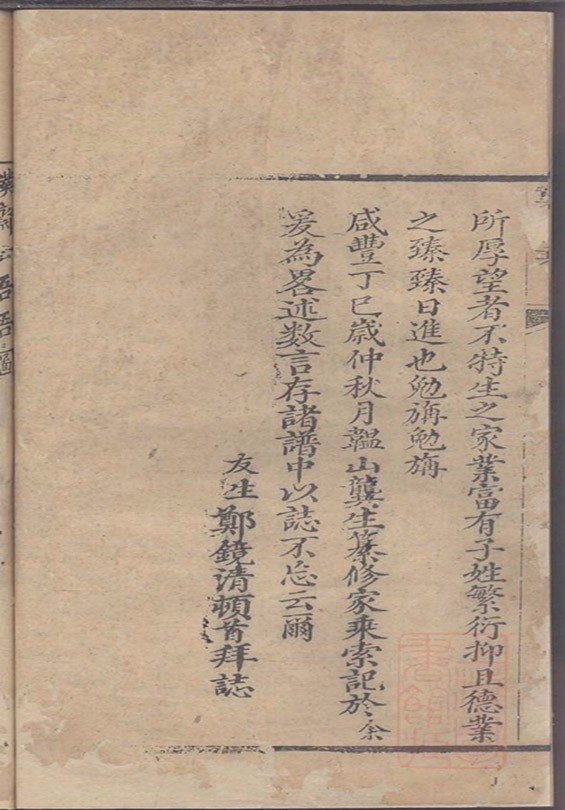 所厚望者不特生之家業富有子姓繁衍抑且德業
之臻臻日進也勉旃勉旃
咸豐丁巳歲仲秋月韞山龔生纂修家乘索記於余
爰為畧述数言存諸譜中以誌不忘云爾
友生鄭鏡清頓首拜誌